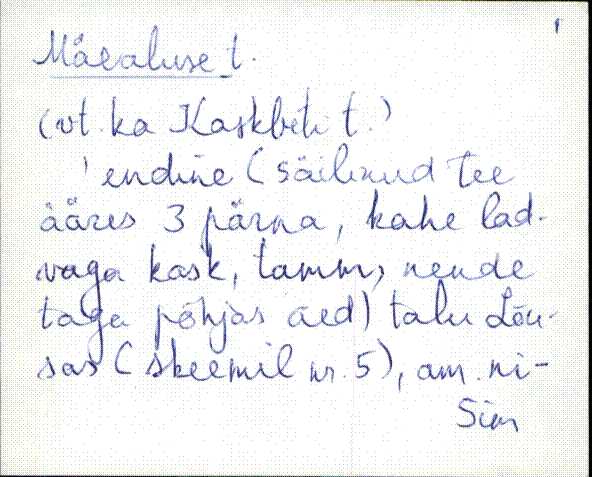 1
Mäealuse t.
(vt. ka Kaskbeti t.)
endine (säilinud tee
ääres 3 pärna, kahe lad-
vaga kask, tamm, nende
taga põhjas aed) talu Lõu-
sas (skeemil nr. 5), am. ni-
Sim